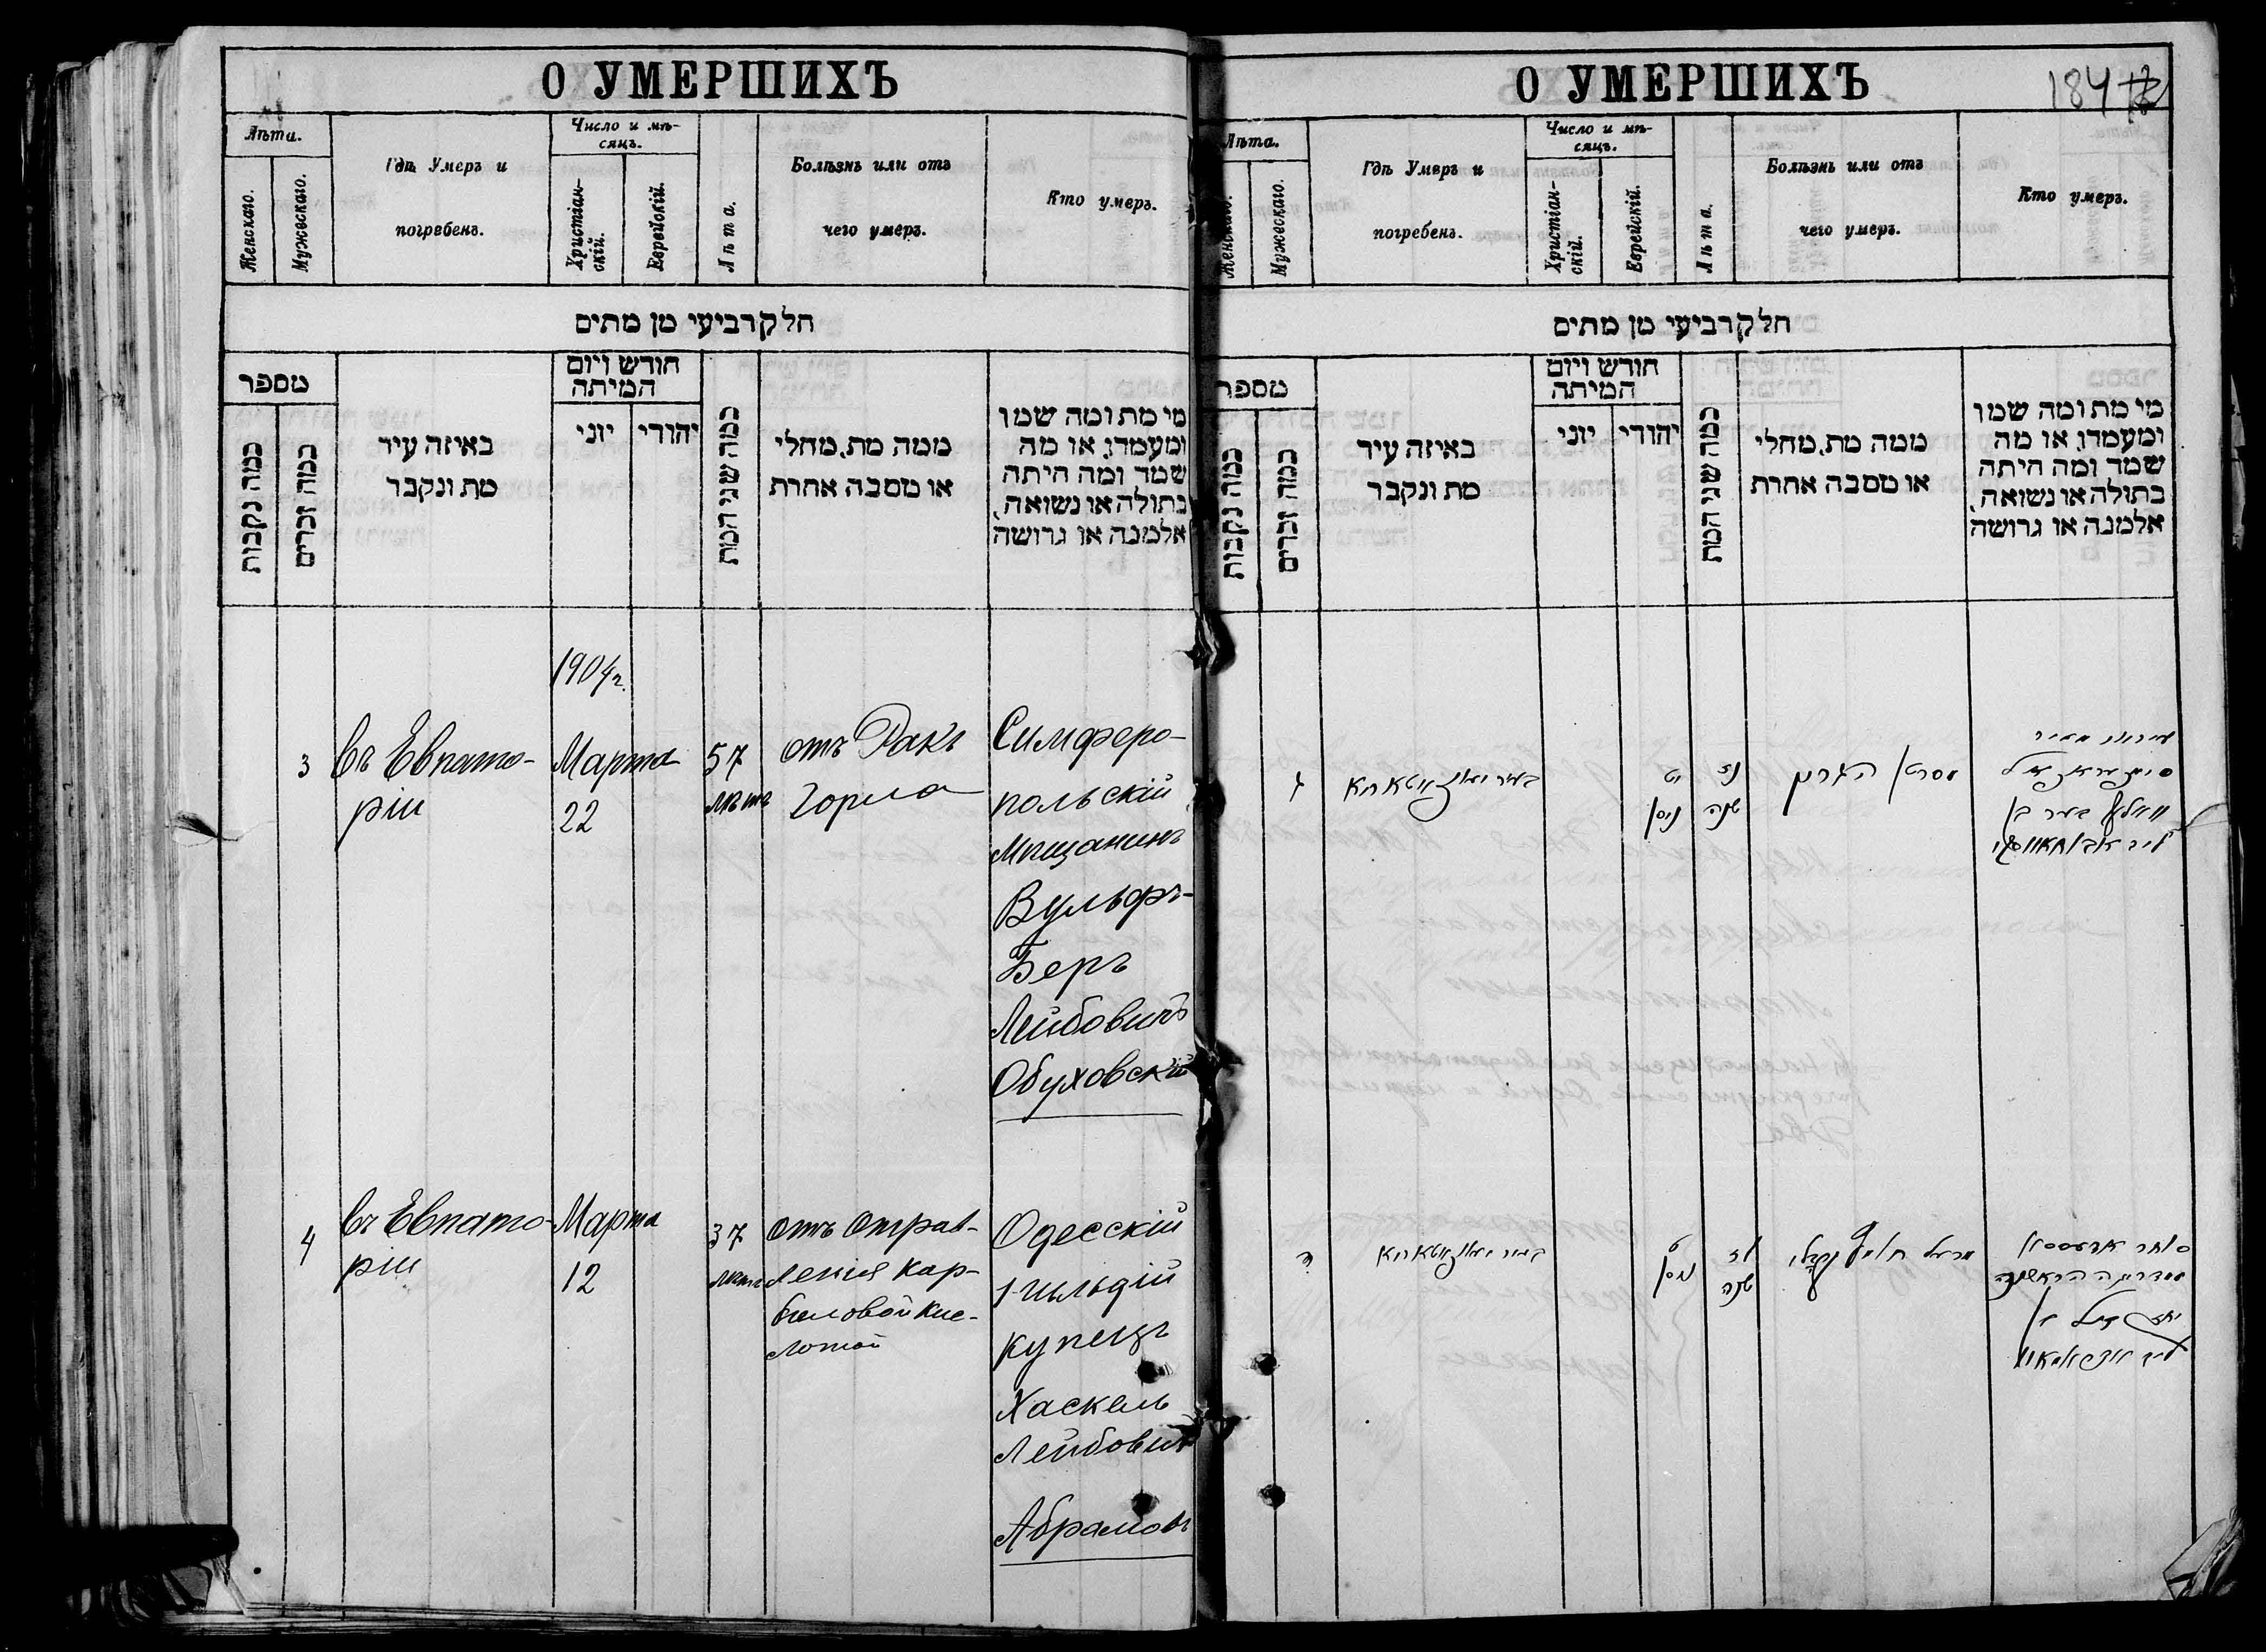 О УМЕРШИХЪ
Лѣта.
Женскаго.
Мужескаго.
Гдѣ Умеръ и
погребенъ.
Число и мѣ-
сяцъ.
Христіан-
скій.
Еврейскій.
Лѣта.
Болѣзнь или отъ
чего умеръ.
Кто умеръ.
חלק רביעי מן מתים
מספר
כמה נקבות
כמה זכרים
באיזה עיר
מת ונקבר
חודש ויום
המיתה
יוני
יהודי
כמה שני המת
ממה מת, מחלי
או מסבה אחרת
מי מת ומה שמו
ומעמדו, או מה
שמה ומה היתה
בתולה או נשואה,
אלמנה או גרושה
1904 г.
3
въ Евпато-
ріи
Марта
22
57
лѣтъ
отъ Ракъ
Горла
Симферо-
польскій
Мѣщанинъ
Вульфъ-
Беръ
Лейбовичъ
Обуховскій
4
въ Евпато-
ріи
Марта
12
37
лѣтъ
отъ отрав-
ленія кар-
боловой кис-
лотой
Одесскій
1 гильдіи
купецъ
Хаскель
Лейбовичъ
Абрамовъ
О УМЕРШИХЪ
184
Лѣта.
Женскаго.
Мужескаго.
Гдѣ Умеръ и
погребенъ.
Число и мѣ-
сяцъ.
Христіан-
скій.
Еврейскій.
Лѣта.
Болѣзнь или отъ
чего умеръ.
Кто умеръ.
חלק רביעי מן מתים
מספר
כמה נקבות
כמה זכרים
באיזה עיר
מת ונקבר
חודש ויום
המיתה
יוני
יהודי
כמה שני המת
ממה מת, מחלי
או מסבה אחרת
מי מת ומה שמו
ומעמדו, או מה
שמה ומה היתה
בתולה או נשואה,
אלמנה או גרושה
ג
ניסן
נז
שנה
סרטן הגרון
ד
ניסן
לז
שנה